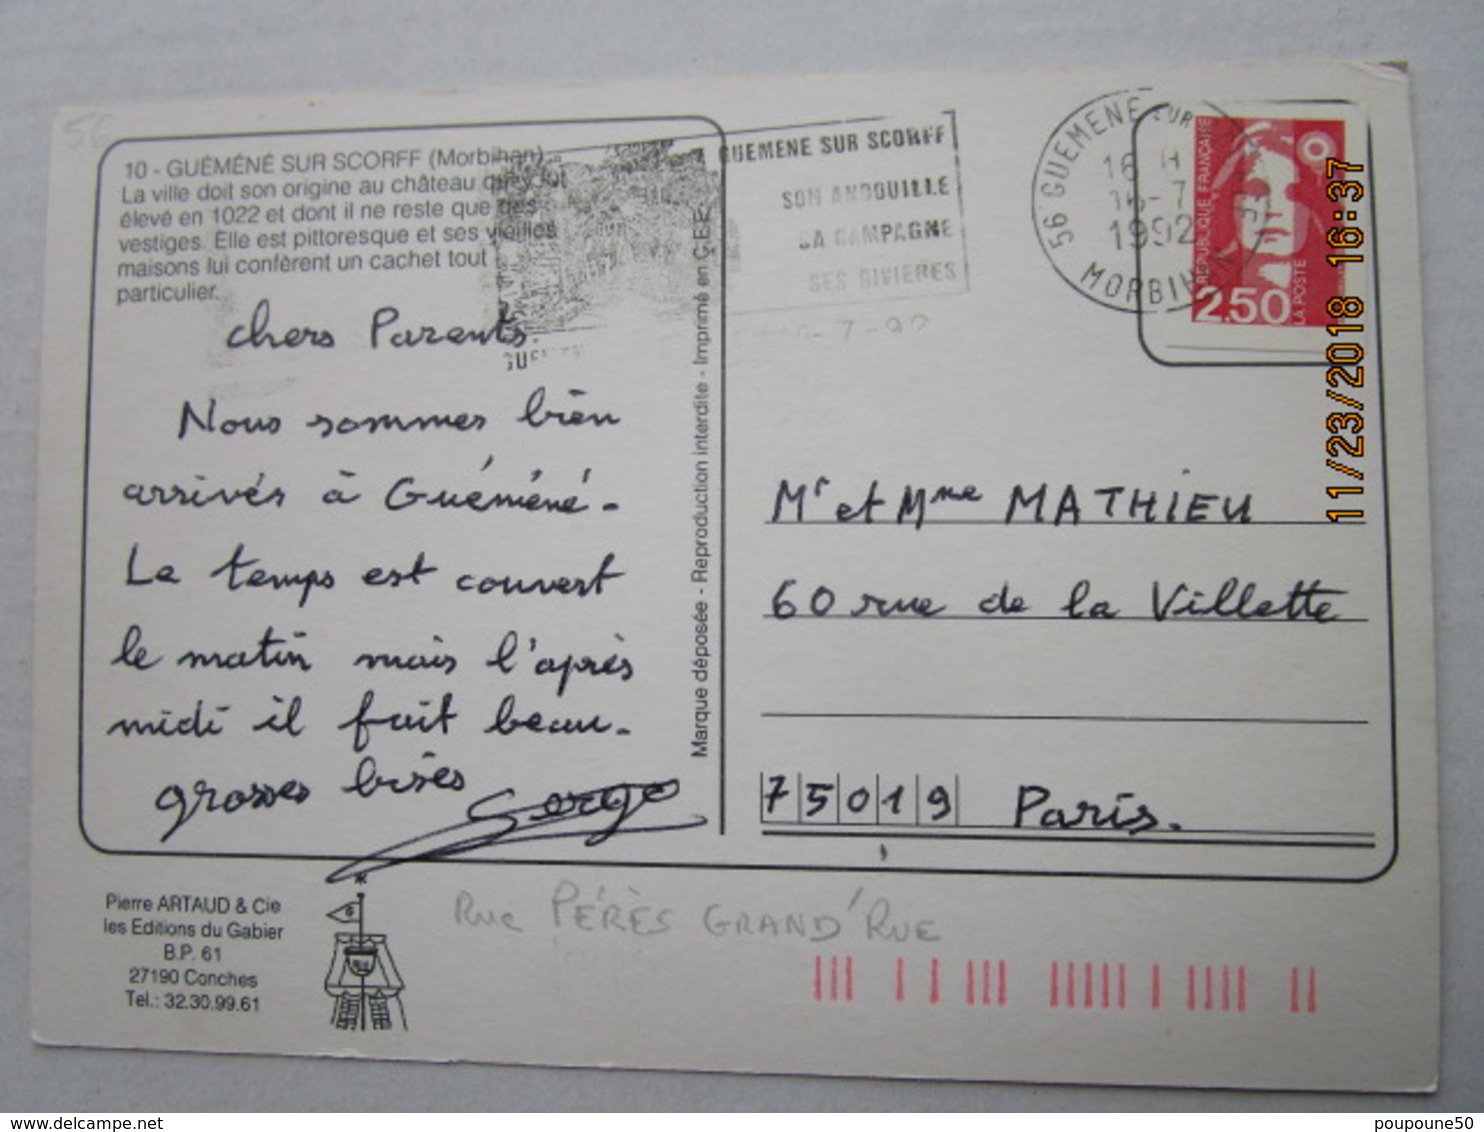 56
10 - GUÉMÉNÉ SUR SCORFF (Morbihan)
La ville doit son origine au château qui y fut
élevé en 1022 et dont il ne reste que des
vestiges. Elle est pittoresque et ses vieilles
maisons lui confèrent un cachet tout
particulier.
chers Parents.
Nous sommes bien
arrivés à Guéméné.
Le temps est couvert
le matin mais l'après
midi il fait beau.
grosses bises
Serge
Pierre ARTAUD & Cie
les Editions du Gabier
B.P. 61
27190 Conches
Tel.: 32.30.99.61
Marque déposée - Reproduction interdite - Imprimé en CEE
GUEMENE SUR SCORFF
SON ANDOUILLE
SA CAMPAGNE
SES RIVIERES
56 GUEMENE SUR
16 H
16-7
1992
MORBIHAN
REPUBLIQUE FRANÇAISE
2,50
LA POSTE
11/23/2018 16:37
Mr et Mme MATHIEU
60 rue de la Villette
75019 Paris.
Rue PÉRÈS GRAND'RUE
poupoune50